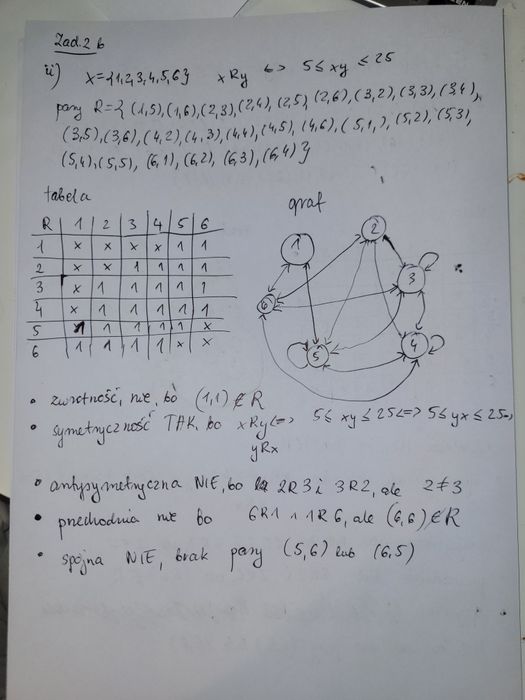 Zad. 2 b
ii) X={1,2,3,4,5,6} xRy <=> 5≤xy≤25
pary R={(1,5),(1,6),(2,3),(2,4),(2,5),(2,6),(3,2),(3,3),(3,4),
(3,5),(3,6),(4,2),(4,3),(4,4),(4,5),(4,6),(5,1,),(5,2),(5,3),
(5,4),(5,5),(6,1),(6,2),(6,3),(6,4)}
tabela
R 1 2 3 4 5 6
1 x x x x 1 1
2 x x 1 1 1 1
3 x 1 1 1 1 1
4 x 1 1 1 1 1
5 1 1 1 1 1 x
6 1 1 1 1 x x
graf
1
2
3
6
5
4
• zwrotność, nie, bo (1,1)∉R
• symetryczność TAK, bo xRy<=> 5≤xy≤25<=>5≤yx≤25=>
yRx
• antysymetryczna NIE, bo 2R3 i 3R2, ale 2≠3
• przechodnia nie bo 6R1 ∧ 1R6, ale (6,6)∉R
• spójna NIE, brak pary (5,6) lub (6,5)